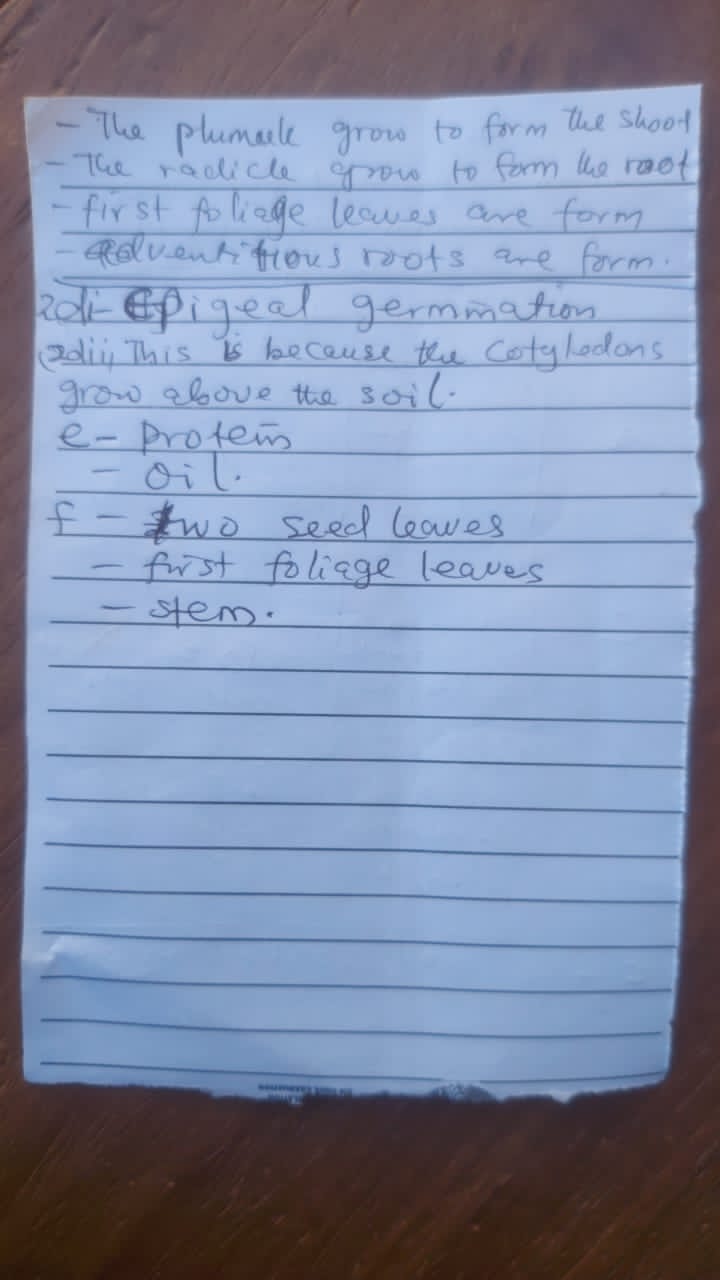 - The plumule grow to form the shoot
- The radicle grow to form the root
- first foliage leaves are form
- Adventitious roots are form.
2di- Epigeal germination
(2dii, This is because the cotyledons
grow above the soil.
e- protein
- oil.
f - two seed leaves
- first foliage leaves
- stem.